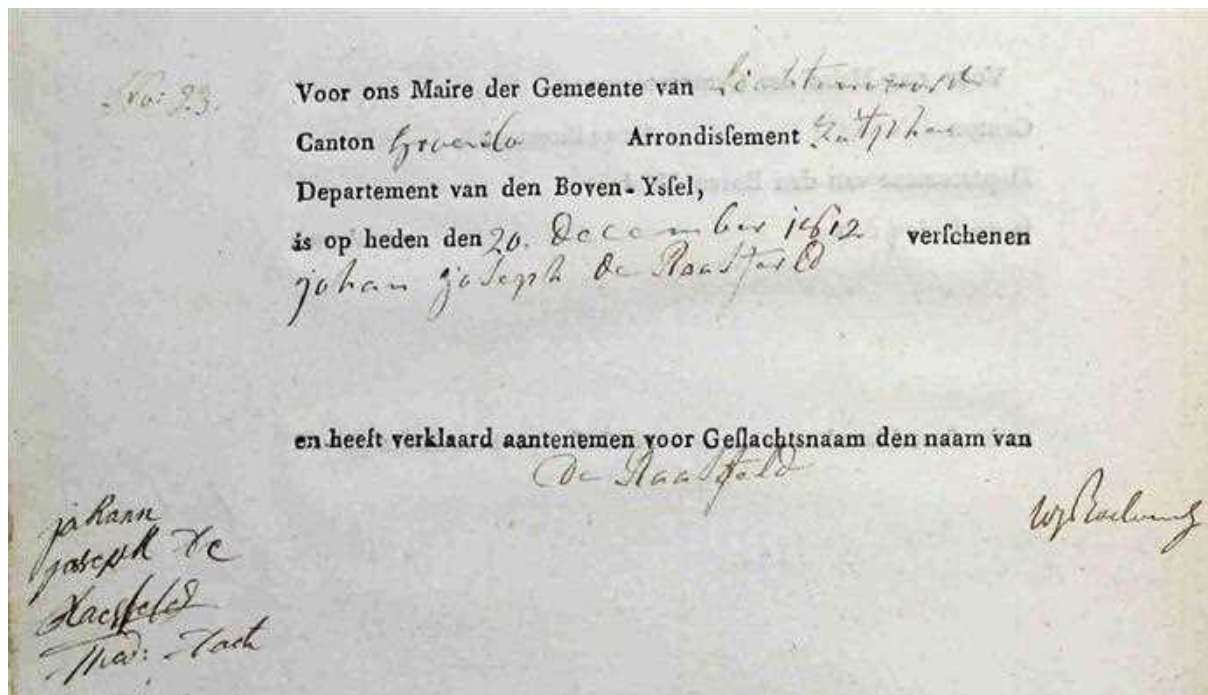 Voor ons Maire der Gemeente van Lichtenvoorde
Canton Groenlo Arrondisſement Zutphen
Departement van den Boven-Ysſel,
is op heden den 20. December 1812 verſchenen
johan joseph de Raasfeld
en heeft verklaard aantenemen voor Geſlachtsnaam den naam van
De Raasfeld
johann
joseph de
Raesfeld